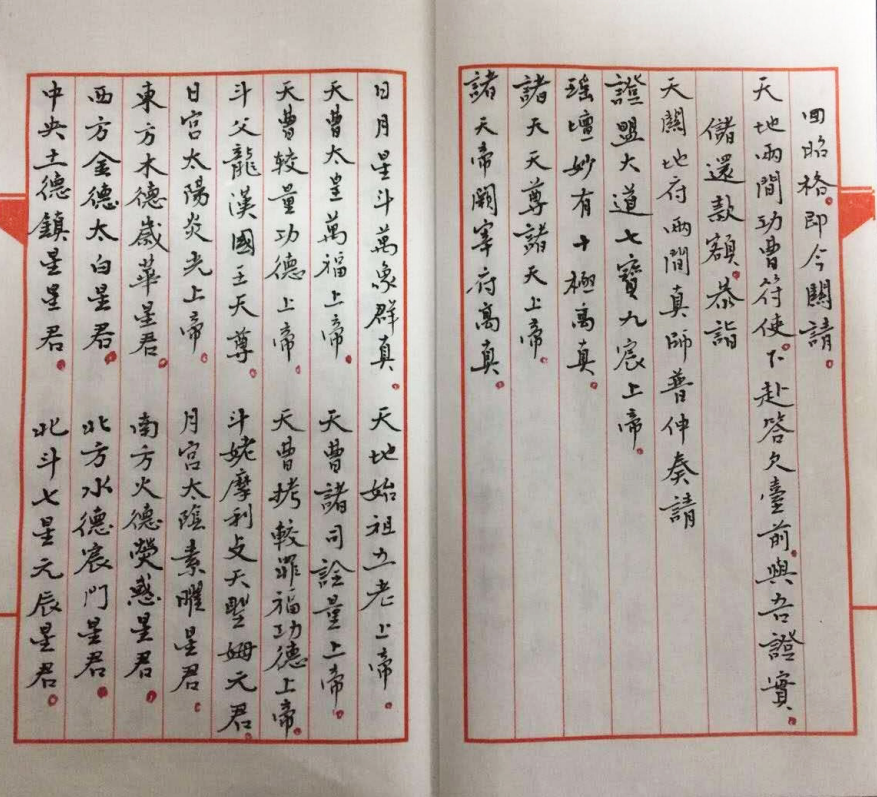 回昭格。即今關請。
天地兩間功曹符使。下赴答欠臺前。與吾證實。
儲還款額。恭詣
天關地府兩間真師普伸奏請
證盟大道七寶九宸上帝。
瑶壇妙有十極高真。
諸天天尊諸天上帝。
諸天帝闕宰府高真。
日月星斗萬象群真。天地始祖五老上帝。
天曹太皇萬福上帝。天曹諸司詮量上帝。
天曹較量功德上帝。天曹考較罪福功德上帝。
斗父龍漢國王天尊。斗姥摩利支天聖姆元君。
日宮太陽炎光上帝。月宮太陰素曜星君。
東方木德歲華星君。南方火德熒惑星君。
西方金德太白星君。北方水德宸門星君。
中央土德鎮星星君。北斗七星元辰星君。